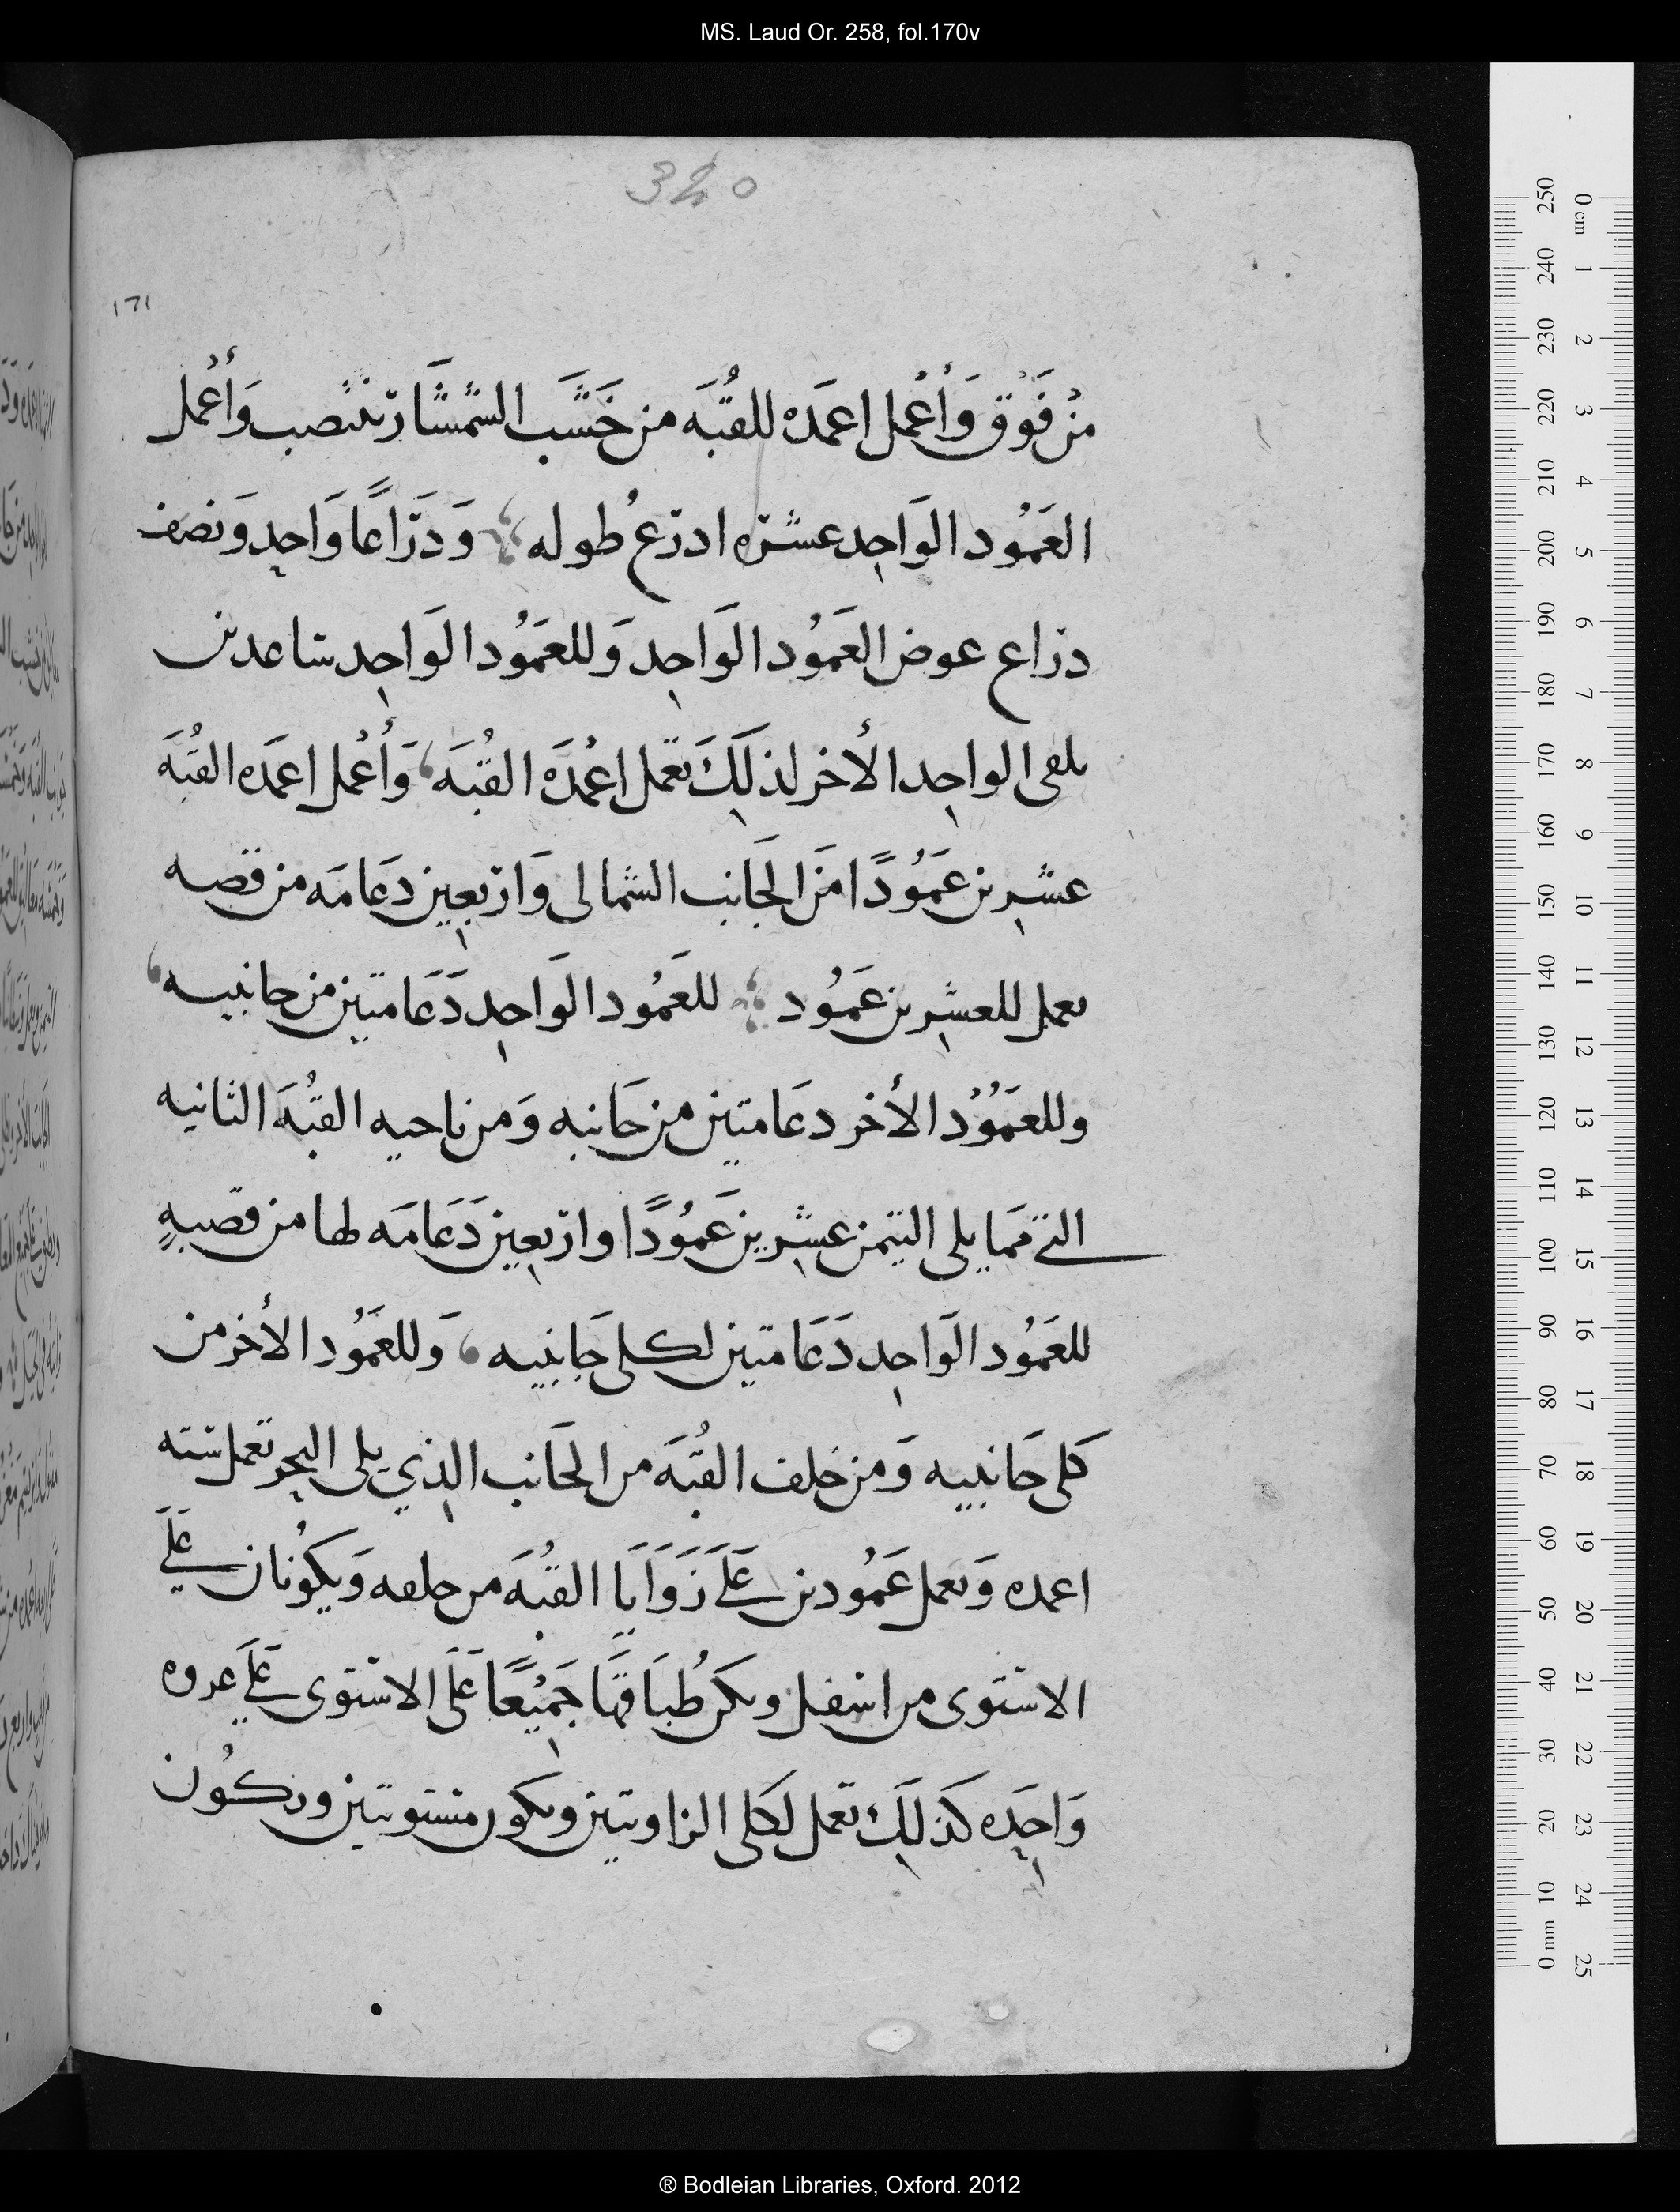 MS. Laud Or. 258, fol.170v
320
١٦١
مِن فَوْق وَأُعْمِل اعمَده للقُبَه من خَشَب الشمشَار تنصب وَأَعْمل
العَمُود الوَاحِد عشره ادرع طوله وَدرَاعًا وَاحِد وَنصف
دراع عوض العَمُود الوَاحِد وَللعَمُود الوَاحِد ساعدين
يلقى الواحِد الأخر لذلِكَ تعمل اعْمدَه القُبَه وَأُعْمل اعمَده القُبَه
عشرين عَمُودًا منَ الجَانب الشمالى وَاربعِين دعَامَه من فصه
يعمل للعشرين عَمُود للعَمُود الوَاحِد دَعَامتين من جانبيه
وللعَمُوُد الأخر دعَامتين من جَانبه وَمن ناحيه القبُهَ الثانيه
التي ممَا يلى التيمن عشرين عَمُودًا واربعِين دَعَامَه لها من فصهٍ
للعَمُود الوَاحِد دَعَامتين لكلى جَانبيه وَللعَمُود الأخر من
كلى جَانبيه وَمن خلف القُبَه من الجَانب الذِي يلى البحر تعمل سته
اعمده وَتعمل عَمُودين عَلَي زَوَايَا القُبَه من خلفه وَيكُونان عَلَي
الاستوى من اسفل ويكن طُبَاقهَا جَمِيعًا عَلَى الاستوى عَلَي عروه
وَاحِدَه كذلِكَ تعمل لكلى الزاويتين ويكون مستويتين ويكُون
0 cm 1 2 3 4 5 6 7 8 9 10 11 12 13 14 15 16 17 18 19 20 21 22 23 24 25
250 240 230 220 210 200 190 180 170 160 150 140 130 120 110 100 90 80 70 60 50 40 30 20 10 0 mm
® Bodleian Libraries, Oxford. 2012